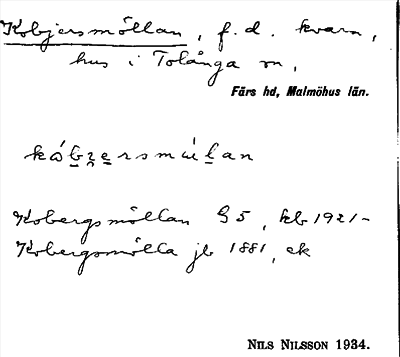 Kobjersmöllan, f.d. kvarn,
hus i Tolånga sn,
Färs hd, Malmöhus län.
Kobergsmöllan G5, kb 1921-
Kobergsmölla jb 1881, ek
NILS NILSSON 1934.